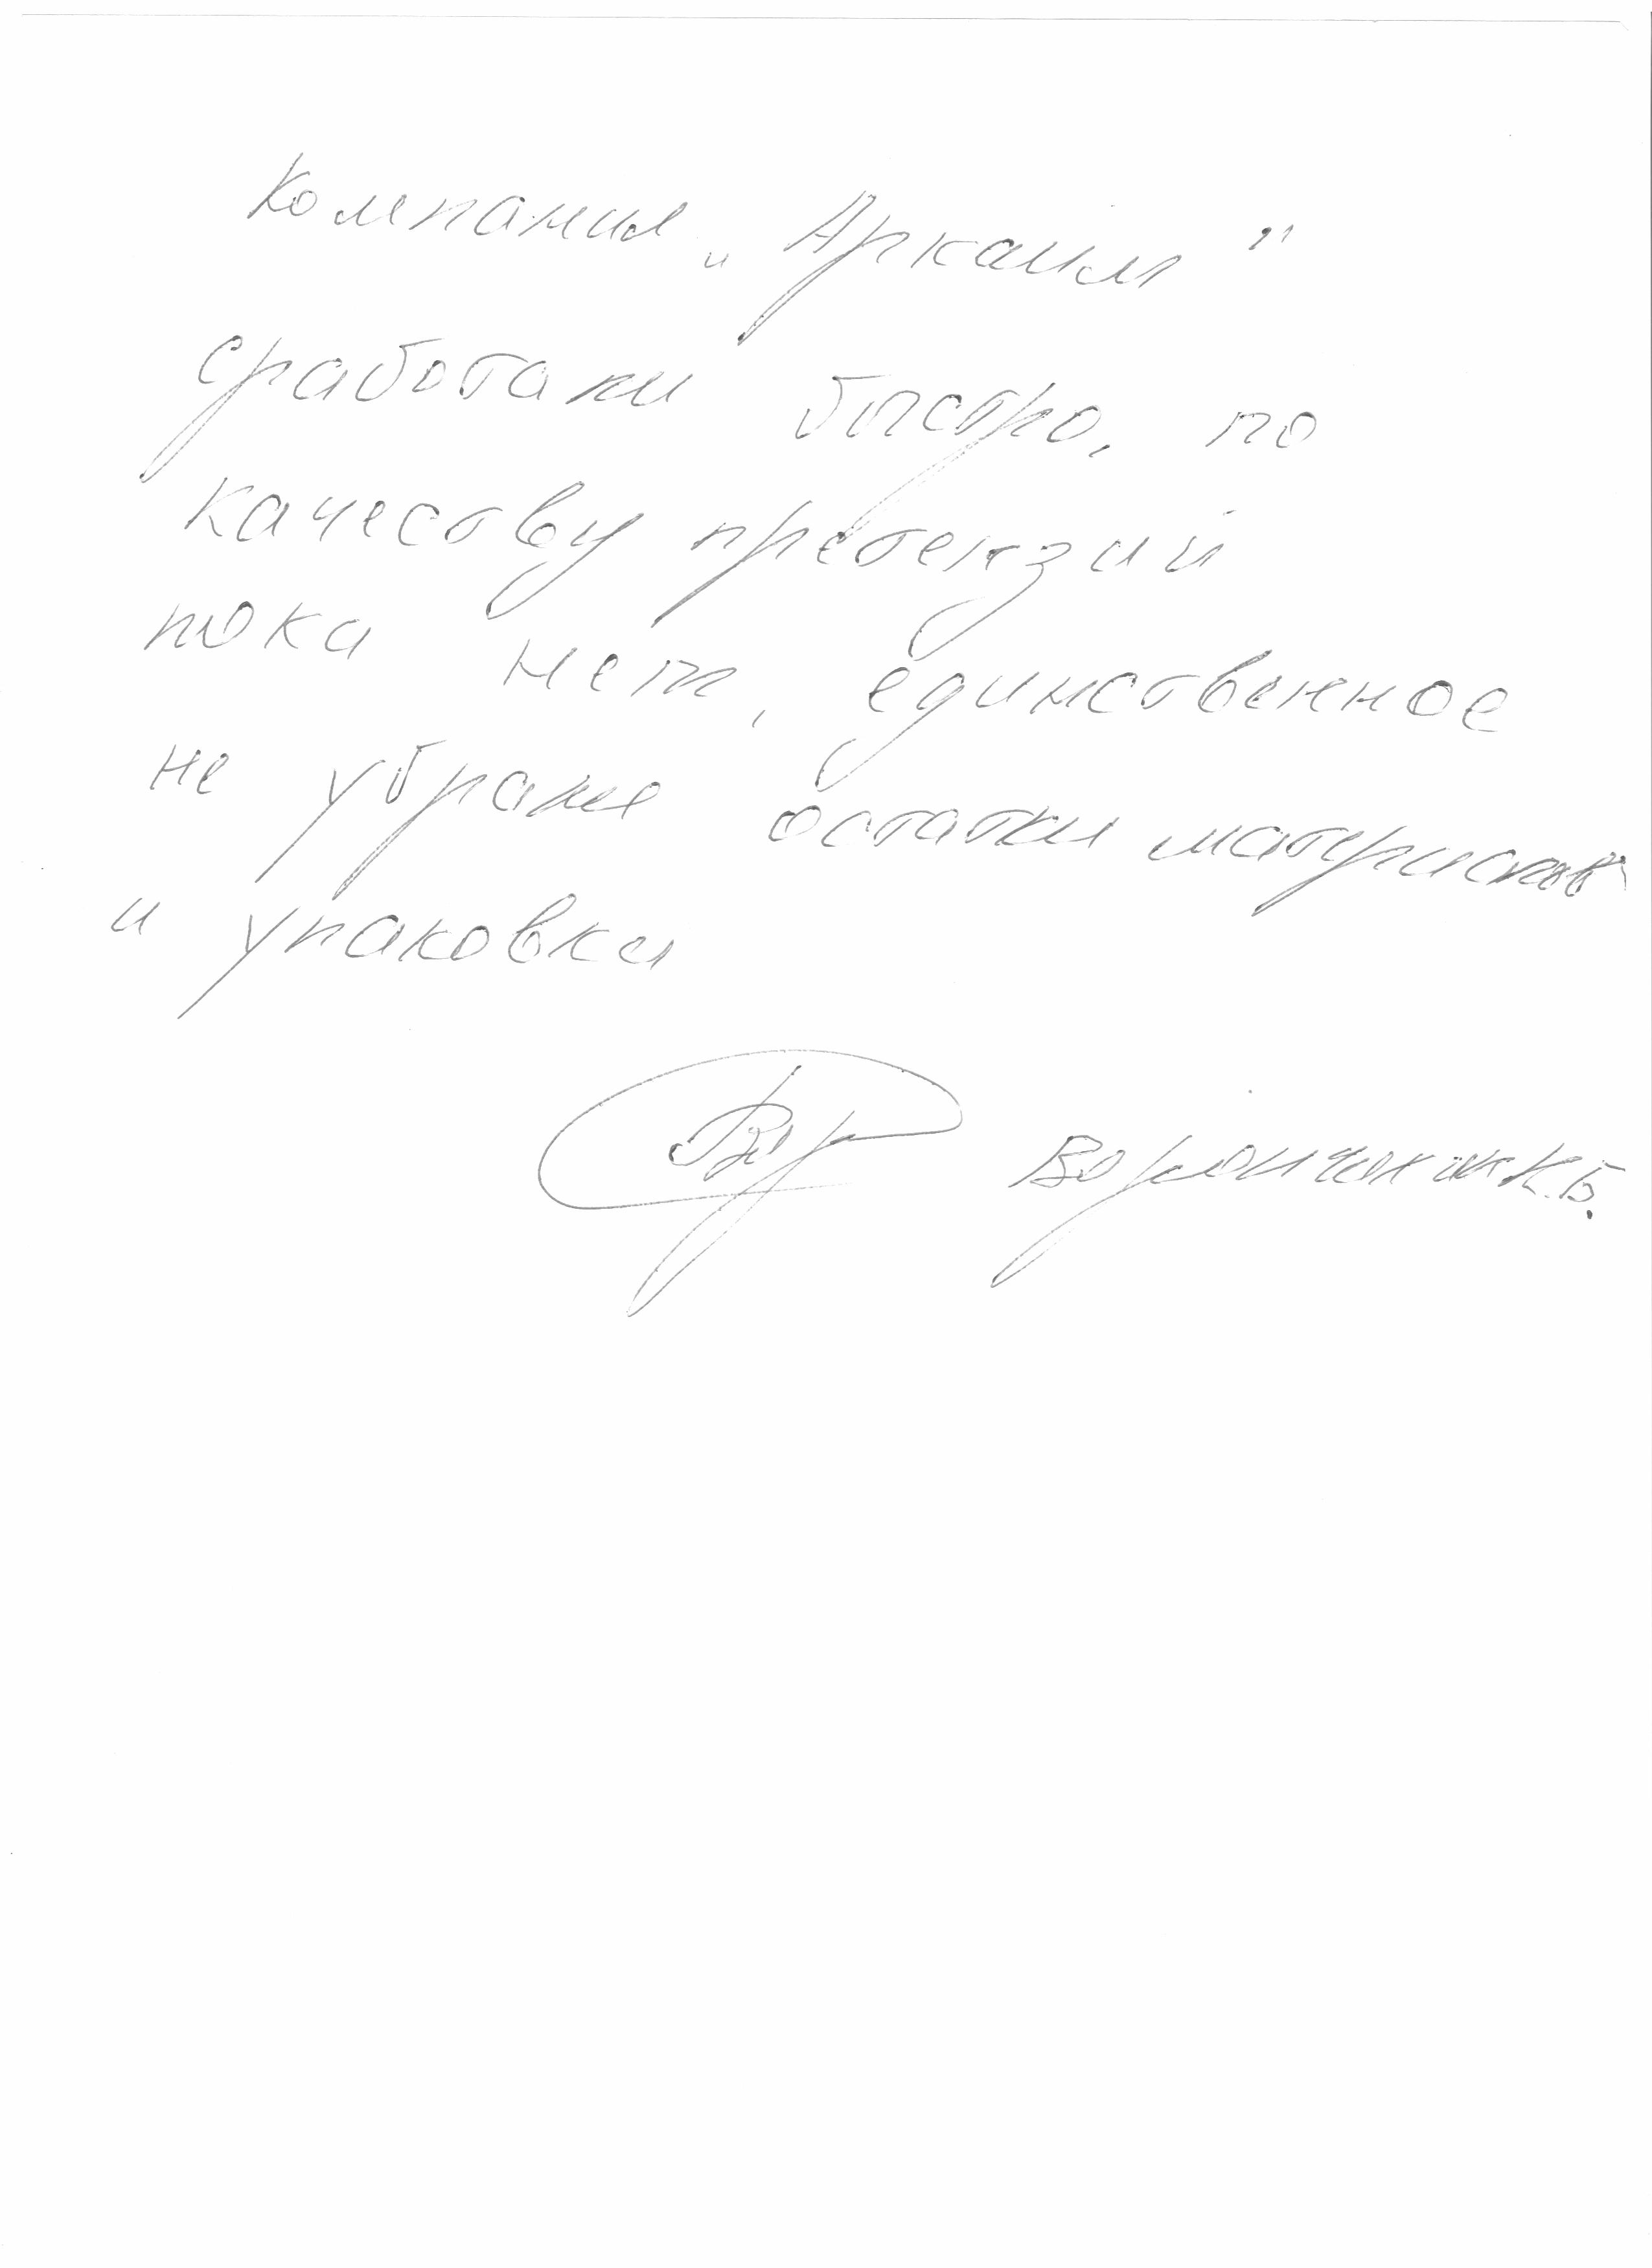 Компания „Аркаим"
сработали быстро, по
качеству претензий
пока нет, единственное
не убраны остатки материалов
и упаковки
К.Б.